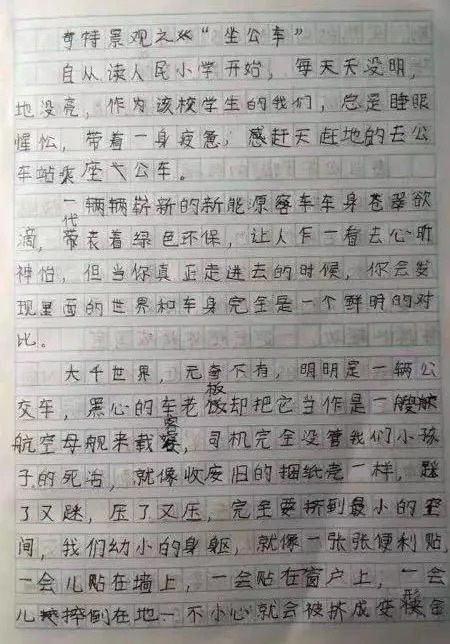 奇特景观之“坐公车”
自从读人民小学开始，每天天没明，
地没亮，作为该校学生的我们，总是睡眼
惺忪，带着一身疲惫，感赶天赶地的去公
车站乘座公车。
一辆辆崭新的新能原客车车身苍翠欲
滴，代表着绿色环保，让人乍一看去心旷
神怡，但当你真正走进去的时候，你会发
现里面的世界和车身完全是一个鲜明的对
比。
大千世界，无奇不有，明明是一辆公
交车，黑心的车老板却把它当作是一艘
航空母舰来载客，司机完全没管我们小孩
子的死治，就像收废旧的捆纸壳一样，
了又，压了又压，完全要挤到最小的空
间，我们幼小的身躯，就像一张张便利贴，
一会儿贴在墙上，一会贴在窗户上，一会
儿摔倒在地一不小心就会被挤成变形金